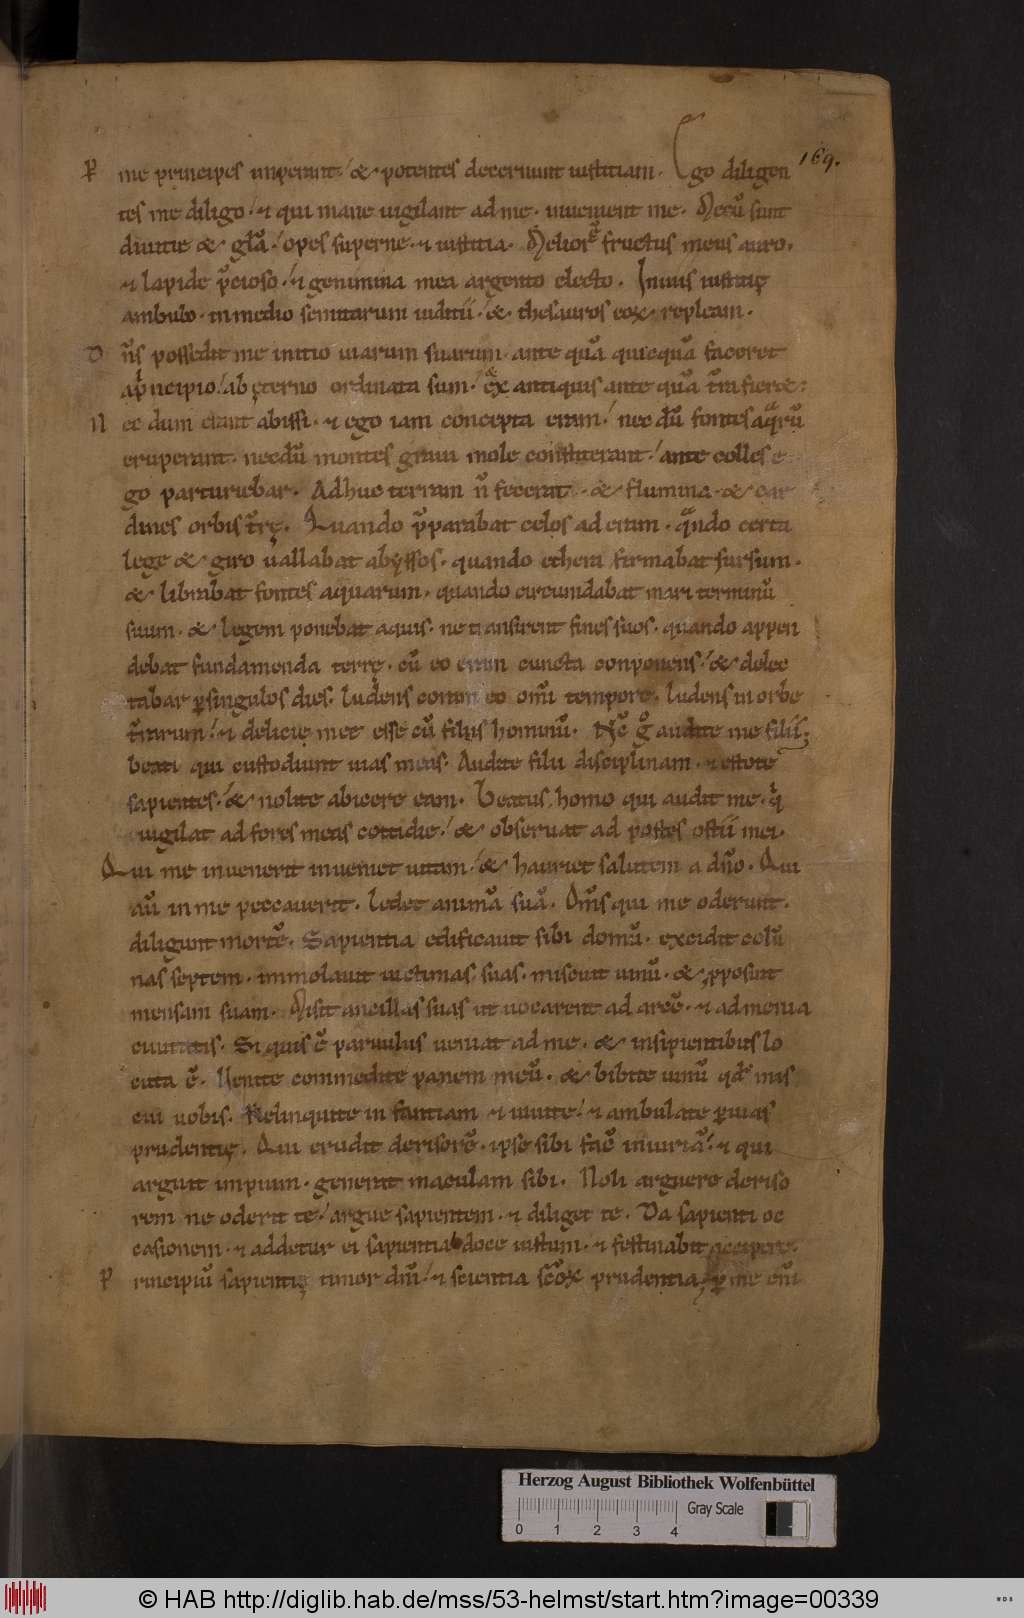 169.
P me principes imperant. & potentes decernunt iustitiam. Ego diligen
tes me diligo. & qui mane uigilant ad me. inuenient me. Mecū sunt
diuitie & gl̄a. opes superne. & iustitia. Melior ē fructus meus auro.
& lapide p̄cioso. & genimina mea argento electo. In uiis iustitię
ambulo. in medio semitarum iuditii. & thesauros eoꝝ repleam.
D n̄s possedit me initio uiarum suarum. ante quā quicquā faceret
a p̍ncipio. ab ęterno ordinata sum. & ex antiquis ante quā t̄ra fieret.
N ec dum erant abissi. & ego iam concepta eram. nec dū fontes aq̄rū
eruperant. necdū montes graui mole constiterant. ante colles e
go parturiebar. Adhuc terram n̄ fecerat. & flumina. & car
dines orbis t̄rę. Quando p̄parabat celos ad eram. q̄ndo certa
lege & giro uallabat abyssos. quando ethera firmabat sursum.
& librabat fontes aquarum. quando circumdabat mari terminū
suum. & legem ponebat aquis. ne transirent fines suos. quando appen
debat fundamenda terrę. cū eo eram cuncta conponens. & delec
tabar ꝑ singulos dies. ludens coram eo om̄i tempore. ludens in orbe
t̄rarum. & delicię meę esse cū filiis hominū. Nc̄ g° audite me filii.
beati qui custodiunt uias meas. Audite filii disciplinam. & estote
sapientes. & nolite abicere eam. Beatus homo qui audit me. q̍
uigilat ad fores meas cottidie. & obseruat ad postes ostii mei.
Qui me inuenerit inueniet uitam. & hauriet salutem a dn̄o. Qui
aū in me peccauerit. ledet animā suā. Om̄s qui me oderunt.
diligunt mortē. Sapientia edificauit sibi domū. excidit colū
nas septem. immolauit uictimas suas. miscuit uinū. & ꝓposuit
mensam suam. Misit ancillas suas ut uocarent ad arcē. & ad menia
ciuitatis. Si quis ē paruulus ueniat ad me. & insipientibus lo
cuta ē. Uenite commedite panem meū. & bibite uinū qd̄ mis
cui uobis. Relinquite in fantiam & uiuite. & ambulate ꝑ uias
prudentię. Qui erudit derisorē. ipse sibi facē iniuriā. & qui
arguit impium. generat maculam sibi. Noli arguere deriso
rem ne oderit te. argue sapientem. & diliget te. Da sapienti oc
casionem. & addetur ei sapientia doce iustum. & festinabit accipere.
P rincipiū sapientię timor dn̄i. & scientia sc̄oꝝ prudentia. ꝑ me eni̅
Herzog August Bibliothek Wolfenbüttel
Gray Scale
0 1 2 3 4
© HAB http://diglib.hab.de/mss/53-helmst/start.htm?image=00339